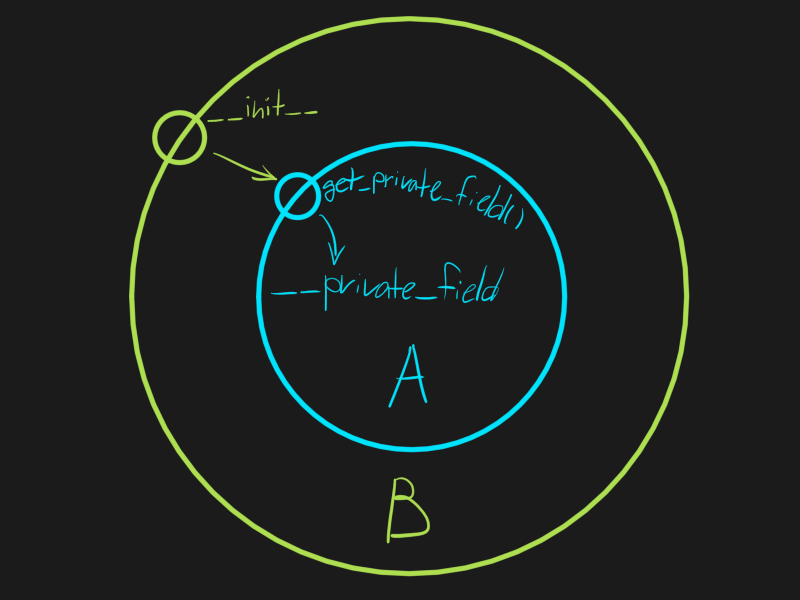 __init__
get_private_field()
__private_field
A
B